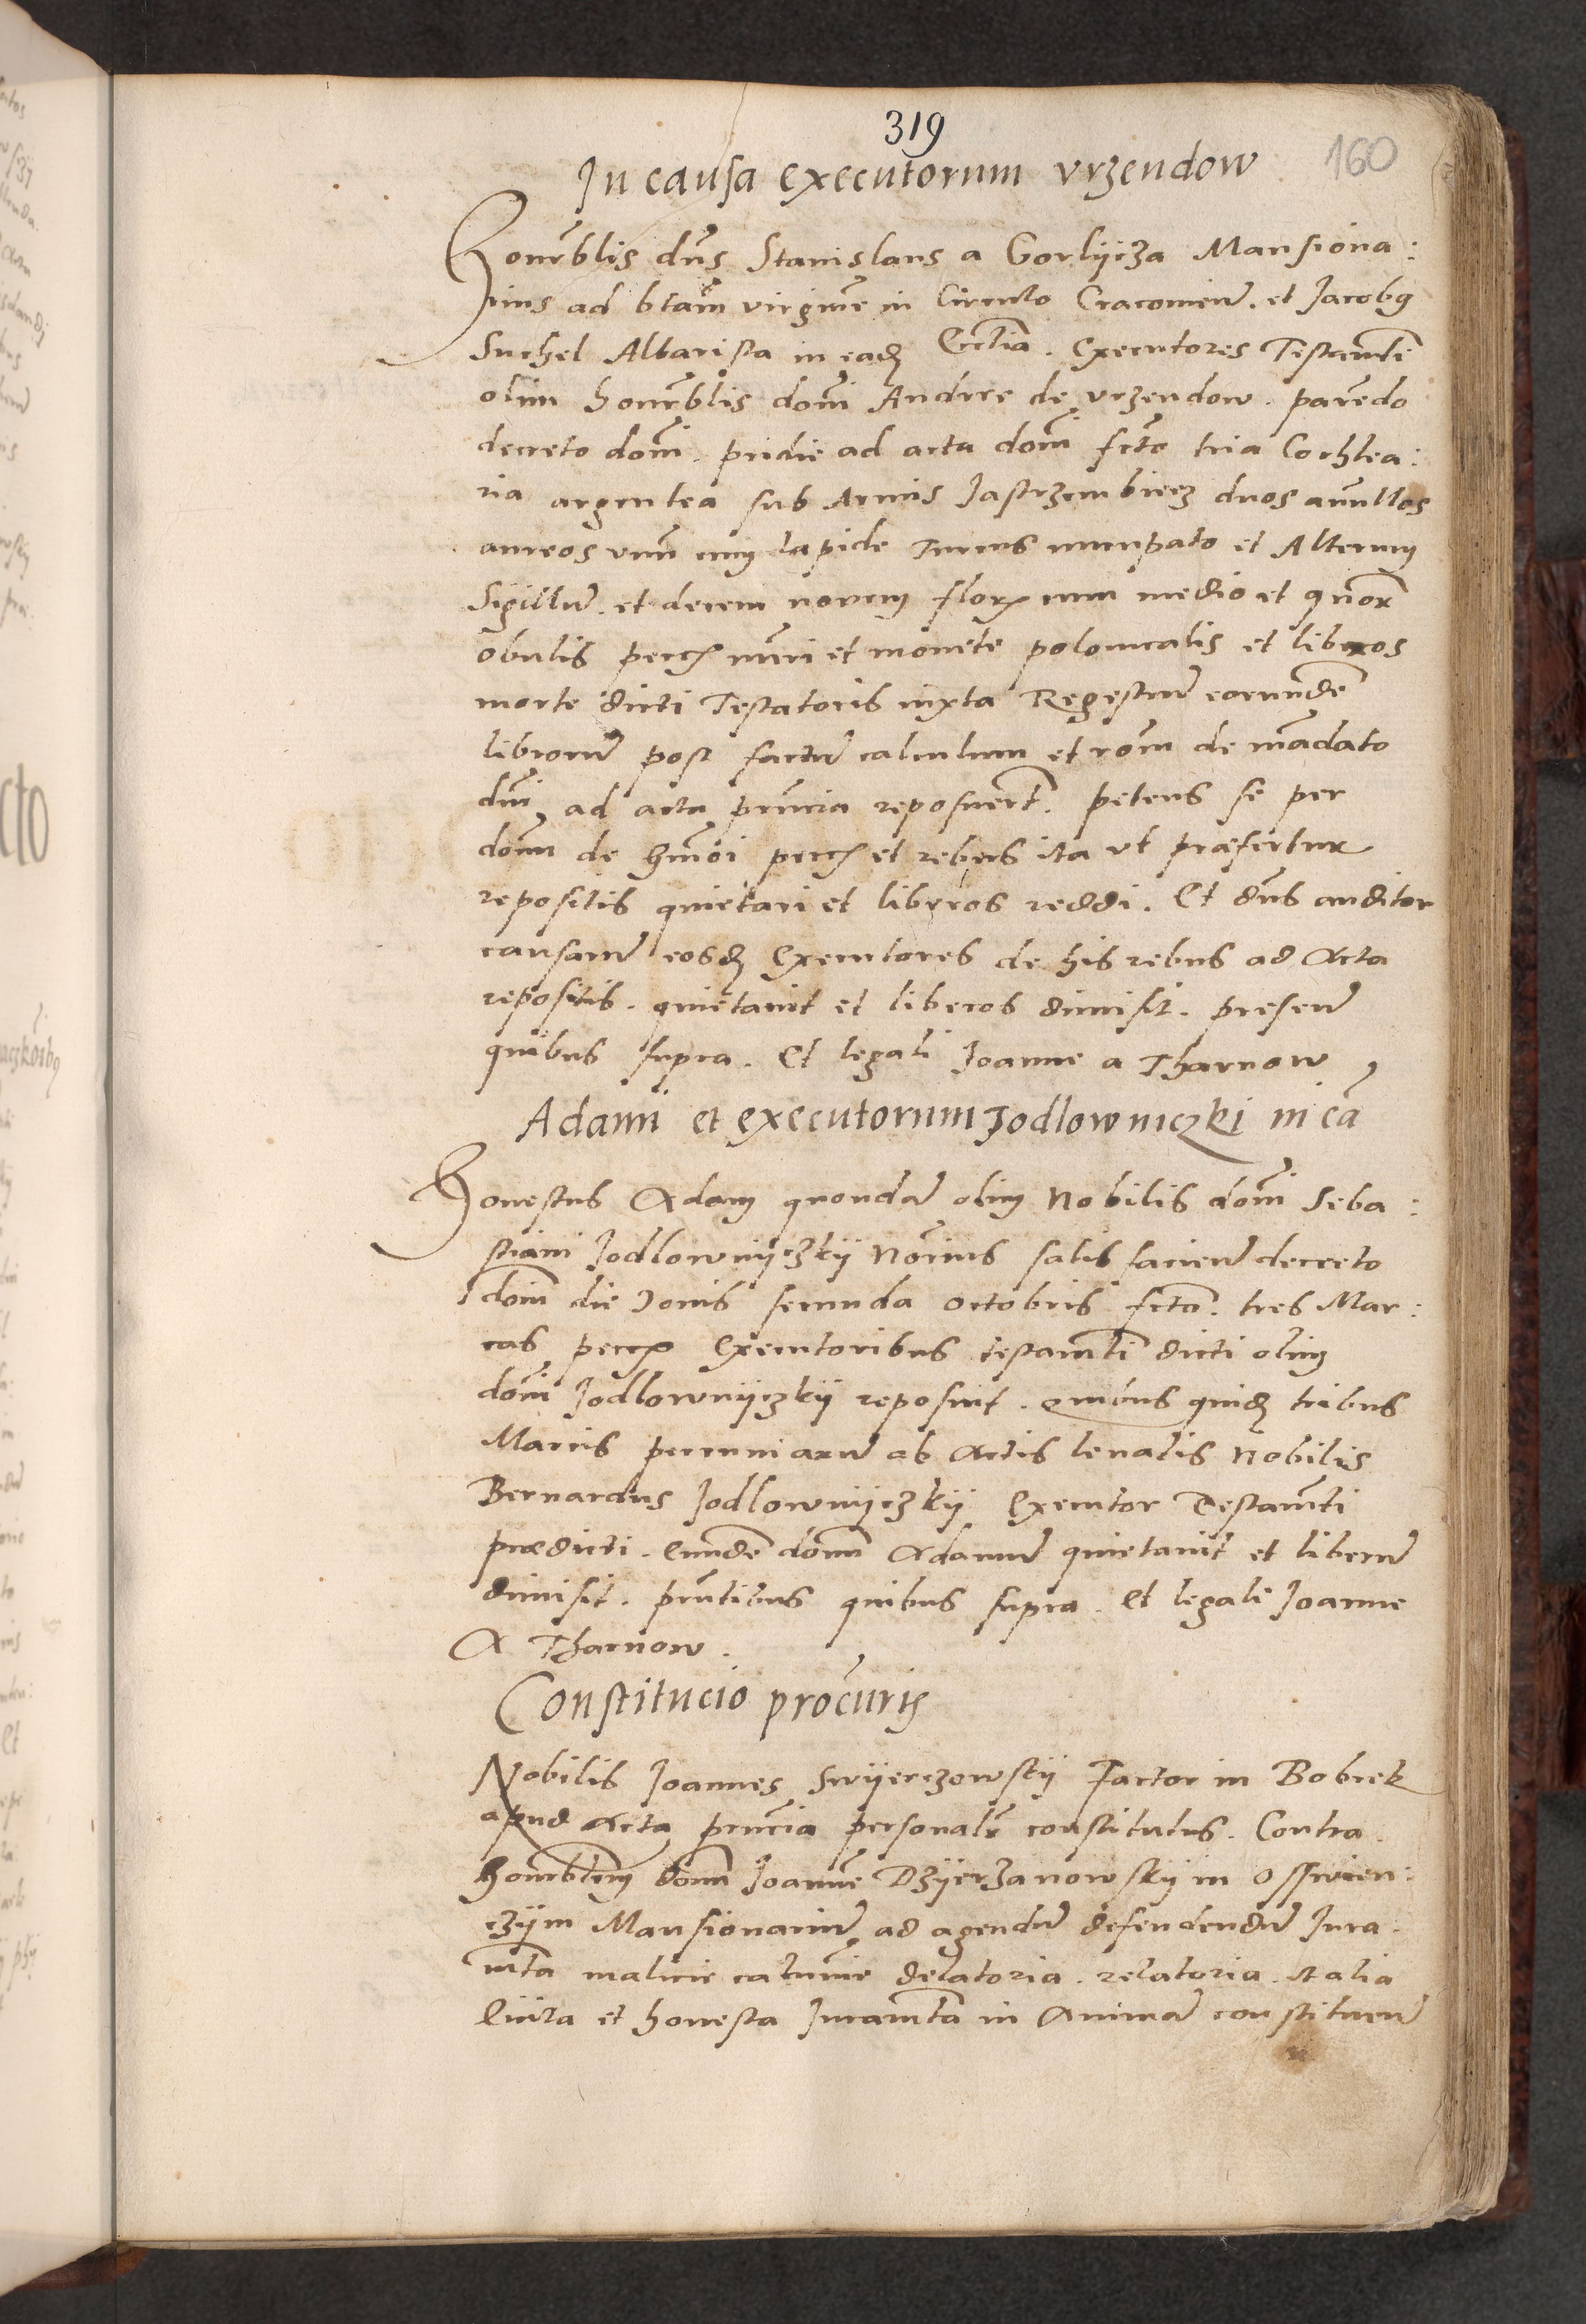 319
160
In causa executorum vrzendow
Honorblis dns Stanislaus a Gorlijcza Mansiona:
rius ad btam virgine in Circulo Cracovien. et Jacobus
Suchel Altarista in eadem Ecclia. Executores Testamti
olim honorblis domi Andree de vrzendow. parendo
decreto domi. pridie ad acta domi fcto tria Cochlea:
ria argentea sub Armis Jastrzembiecz duos anullos
aureos vnum cum lapide Turcus nuncupato et Alterum
Sigillum. et decem novem flor cum medio et quor
obulis pecc numeri et monete polonicalis et libros
morte dicti Testatoris iuxta Regestrum eorunde
librorum post factum calculum et rom de madato
dni ad acta pncia reposuert. petens se per
dom de hmoi pecc et rebus ita vt præfertur
repositis quietari et liberos reddi. Et dns auditor
causarum eosdem Executores de his rebus ad Acta
repositis. quietavit et liberos dimisit. presen
quibus supra. Et legali Joanne a Tharnow
Adami et executorum Jodlowniczki in ca
Honestus Adam quondam olim Nobilis domi Seba:
stiani Jodlownijczkij satis facien decreto
dom die Jovis secunda Octobris fcto. tres Mar:
cas pecc Executoribus testamti dicti olim
domi Jodlownijczkij reposuit. quibus quidem tribus
Marcis pecuniarum ab Actis levatis Nobilis
Bernardus Jodlownijczkij Executor Testamti
prædicti. Eunde dom Adamum quietavit et liberum
dimisit. pntibus quibus supra. Et legali Joanne
A Tharnow.
Constitucio procuris
Nobilis Joannes Swijerczowskij Factor in Bobrek
apud Acta pncia personalr constitutus. Contra
honorblem dom Joanne Dzijerzanowskij in Osswien:
czijm Mansionarium ad agendum defendendum Jura
mta malicie calumnie delatoria. relatoria. et alia
licita et honesta Juramta in Animam constituen